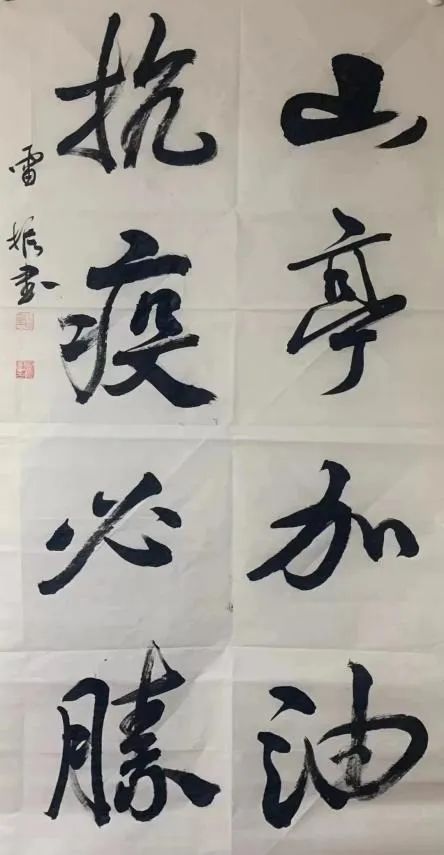 山亭加油
抗疫必勝
雷振书